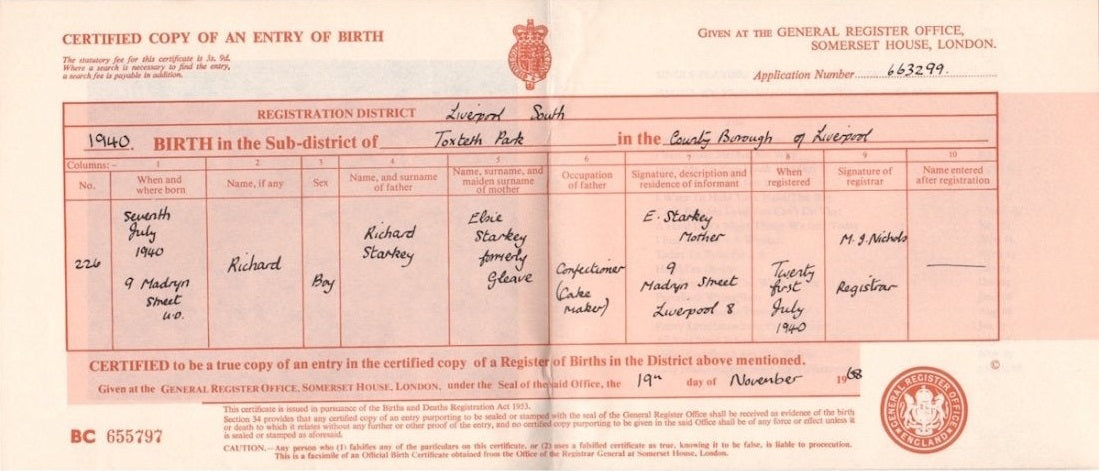 CERTIFIED COPY OF AN ENTRY OF BIRTH
The statutory fee for this certificate is 3s. 9d.
Where a search is necessary to find the entry,
a search fee is payable in addition.
GIVEN AT THE GENERAL REGISTER OFFICE,
SOMERSET HOUSE, LONDON.
Application Number 663299.
REGISTRATION DISTRICT Liverpool South
1940. BIRTH in the Sub-district of Toxteth Park in the County Borough of Liverpool
Columns:- 1 2 3 4 5 6 7 8 9 10
No.
When and
where born
Name, if any
Sex
Name, and surname
of father
Name, surname, and
maiden surname
of mother
Occupation
of father
Signature, description and
residence of informant
When
registered
Signature of
registrar
Name entered
after registration
226
Seventh
July
1940
9 Madryn
Street
U.D.
Richard
Boy
Richard
Starkey
Elsie
Starkey
formerly
Gleave
Confectioner
(Cake
maker)
E. Starkey
Mother
9
Madryn Street
Liverpool 8
Twenty
first
July
1940
M. J. Nichols
Registrar
CERTIFIED to be a true copy of an entry in the certified copy of a Register of Births in the District above mentioned.
Given at the GENERAL REGISTER OFFICE, SOMERSET HOUSE, LONDON, under the Seal of the said Office, the 19th day of November 1968
This certificate is issued in pursuance of the Births and Deaths Registration Act 1953.
Section 34 provides that any certified copy of an entry purporting to be sealed or stamped with the seal of the General Register Office shall be received as evidence of the birth
or death to which it relates without any further or other proof of the entry, and no certified copy purporting to be given in the said Office shall be of any force or effect unless it
is sealed or stamped as aforesaid.
BC 655797
CAUTION.—Any person who (1) falsifies any of the particulars on this certificate, or (2) uses a falsified certificate as true, knowing it to be false, is liable to procecution.
This is a facsimile of an Official Birth Certificate obtained from the Office of the Registrar General at Somerset House, London.
©
GENERAL REGISTER OFFICE
ENGLAND